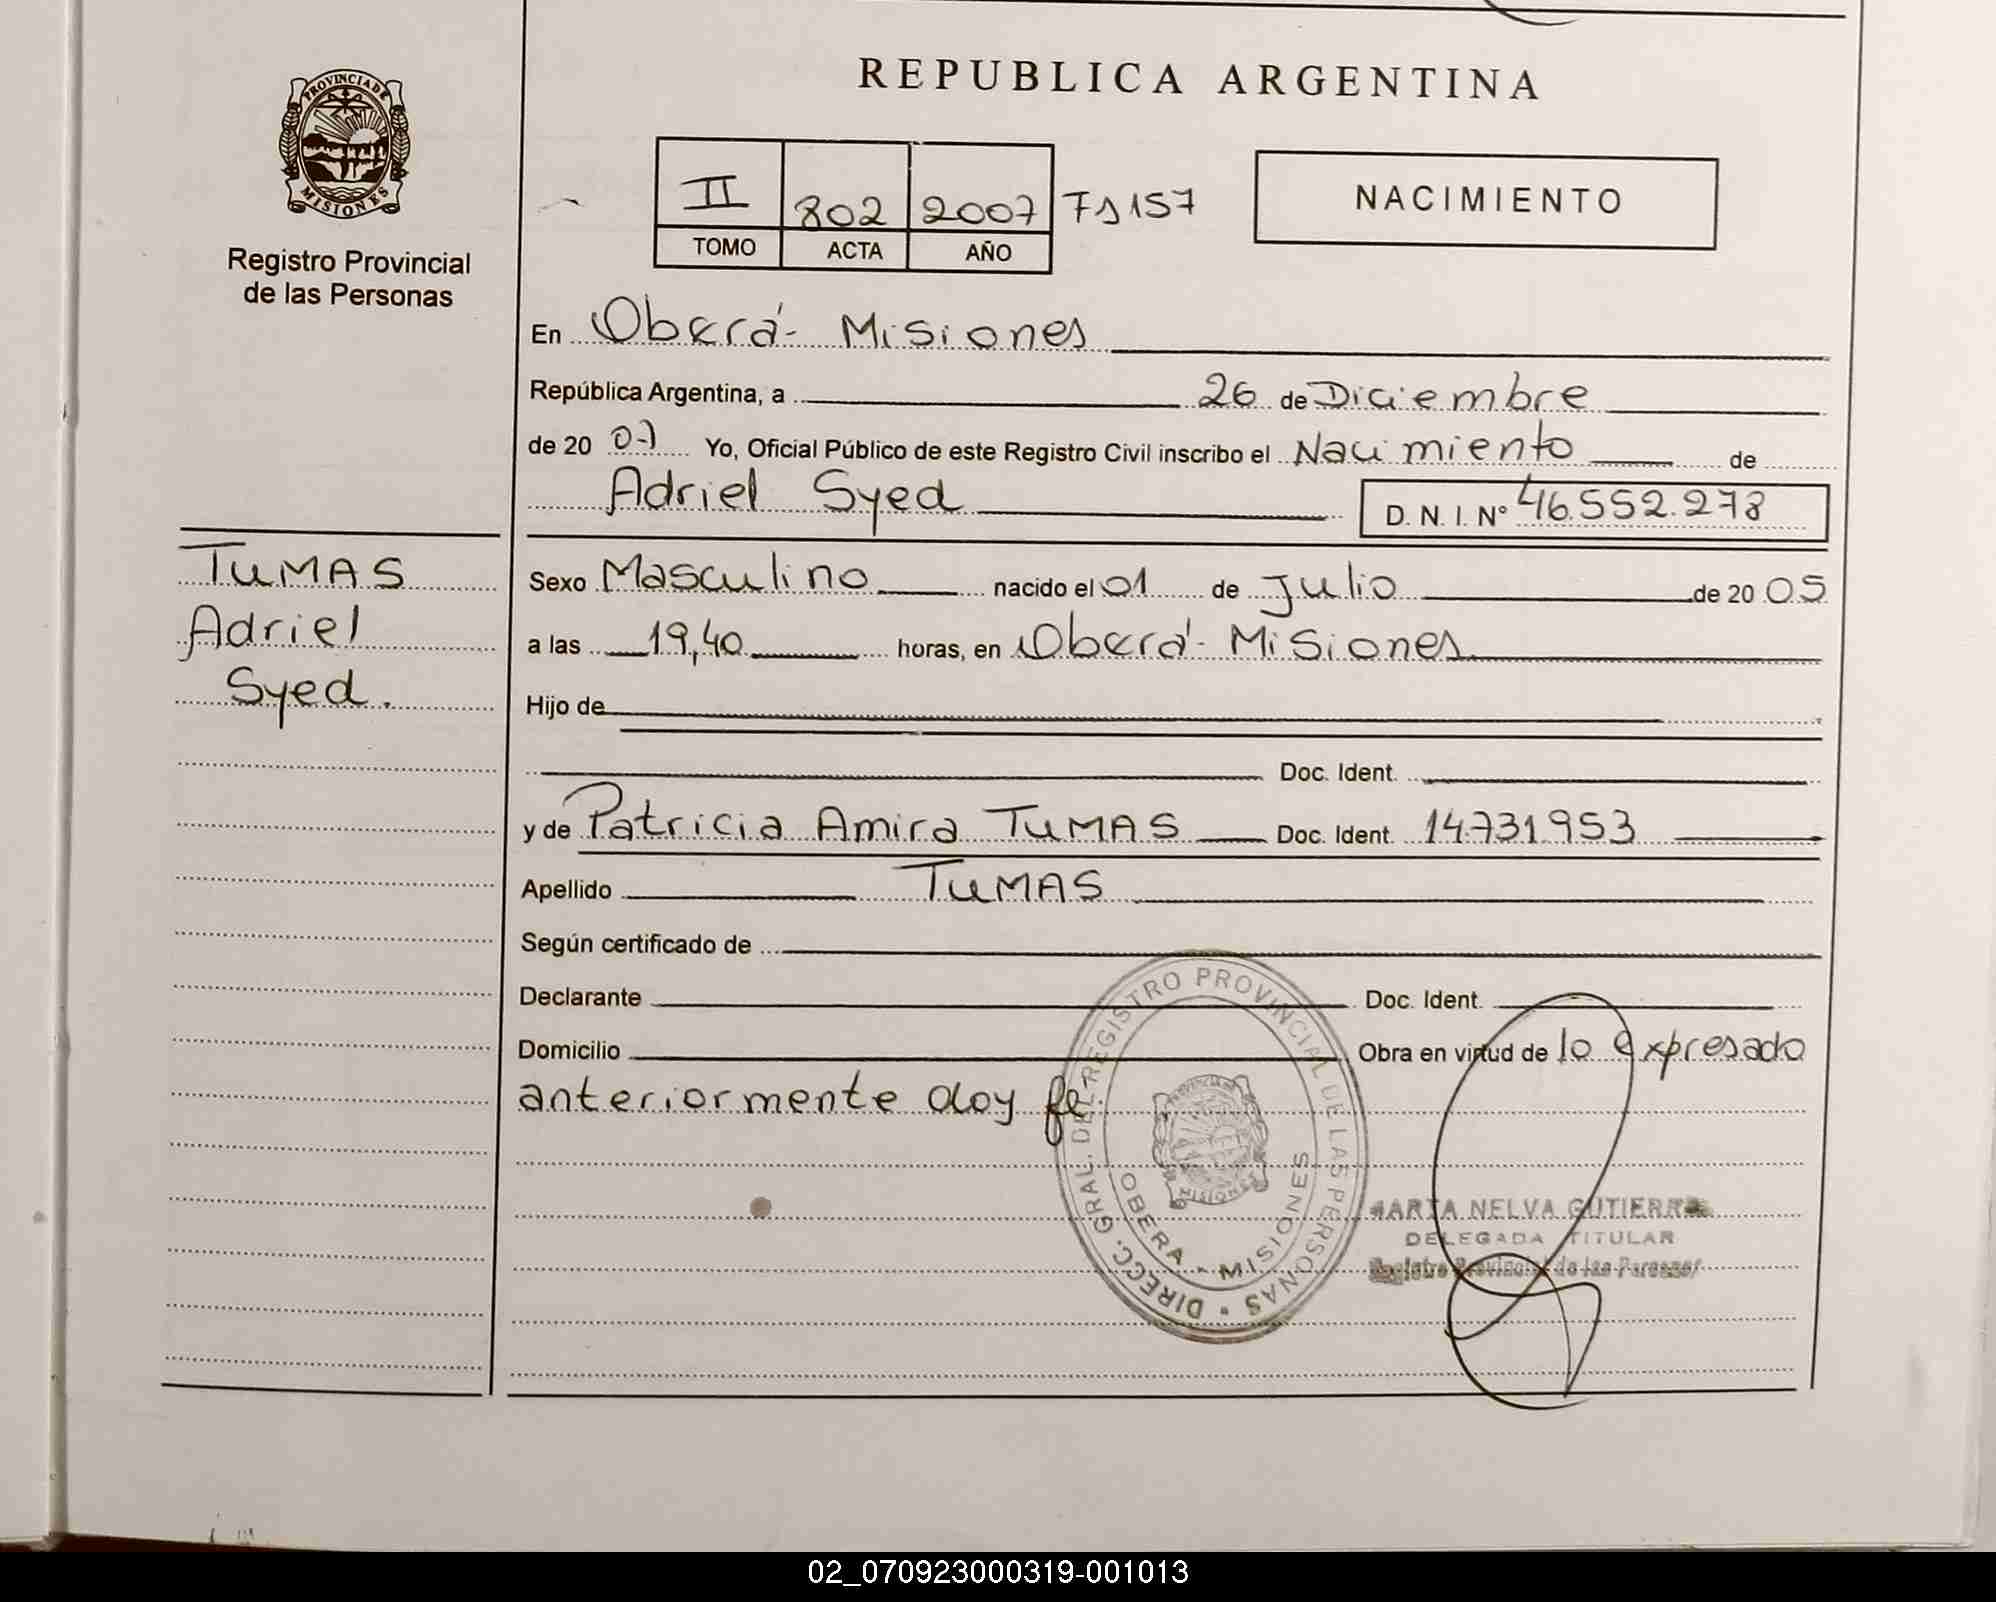 REPUBLICA ARGENTINA
PROVINCIA DE
MISIONES
Registro Provincial
de las Personas
II 802 2007 Fs 157
TOMO ACTA AÑO
NACIMIENTO
En Oberá - Misiones
República Argentina, a 26 de Diciembre
de 20 07 Yo, Oficial Público de este Registro Civil inscribo el Nacimiento de
Adriel Syed D. N. I. N° 46.552.278
TUMAS
Adriel
Syed.
Sexo Masculino nacido el 01 de Julio de 20 05
a las 19,40 horas, en Oberá - Misiones
Hijo de
Doc. Ident.
y de Patricia Amira TUMAS Doc. Ident. 14.731.953
Apellido TUMAS
Según certificado de
Declarante Doc. Ident.
Domicilio Obra en virtud de lo expresado
anteriormente doy fe.-
DIRECC. GRAL. DEL REGISTRO PROVINCIAL DE LAS PERSONAS
OBERA - MISIONES
MISIONES
NELVA
DELEGADA TITULAR
Registro Provincial de las Personas
02_070923000319-001013